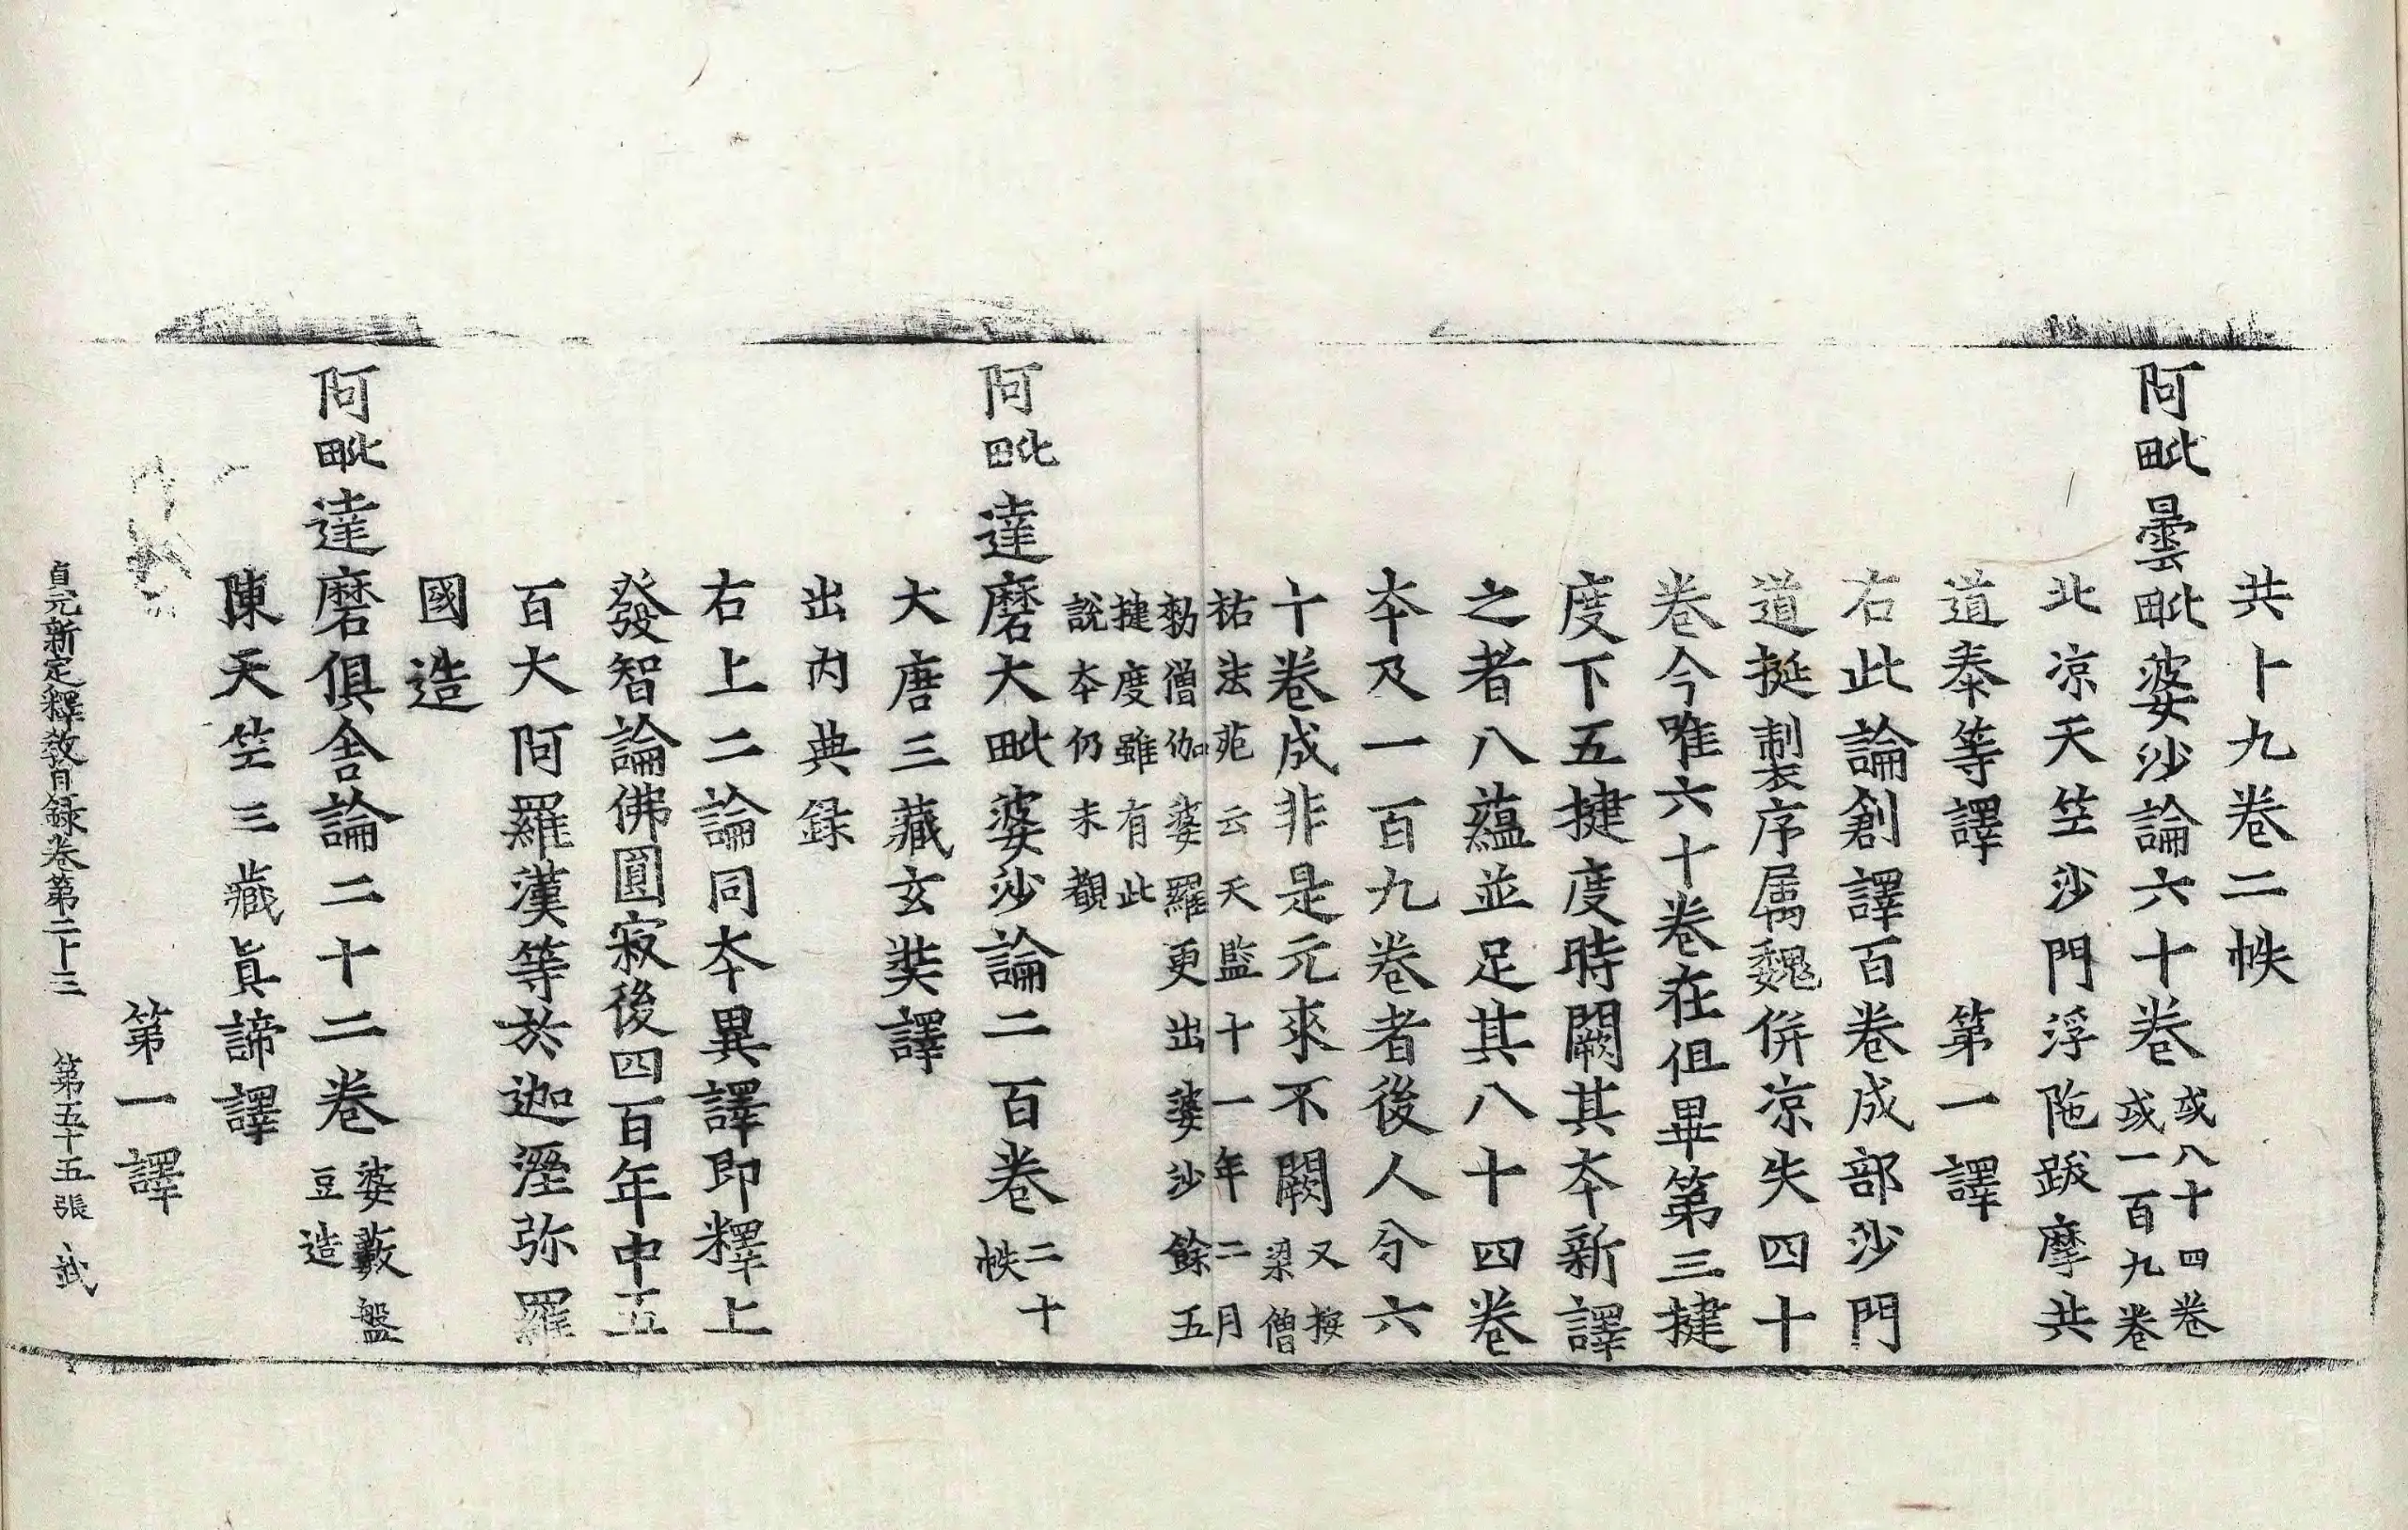 共十九卷二帙
阿毗曇毗婆沙論六十卷或八十四卷或一百九卷
北凉天竺沙門浮陁跋摩共
道泰等譯　第一譯
右此論創譯百卷成部沙門
道挻製序屬魏併凉失四十
卷今唯六十卷在但畢第三揵
度下五揵度時闕其夲新譯
之者八蘊並足其八十四卷
夲及一百九卷者後人分六
十卷成非是元來不闕又按梁僧
祐法苑云天監十一年二月
勑僧伽婆羅更出婆沙餘五
揵度雖有此
說夲仍未覩
阿毗達磨大毗婆沙論二百卷二十帙
大唐三藏玄奘譯
出內典録
右上二論同夲異譯即釋上
發智論佛圓寂後四百年中五
百大阿羅漢等於迦溼弥羅
國造
阿毗達磨俱舍論二十二卷婆藪盤豆造
陳天竺三藏眞諦譯
第一譯
貞元新定釋教目録卷第二十三　第五十五張　武